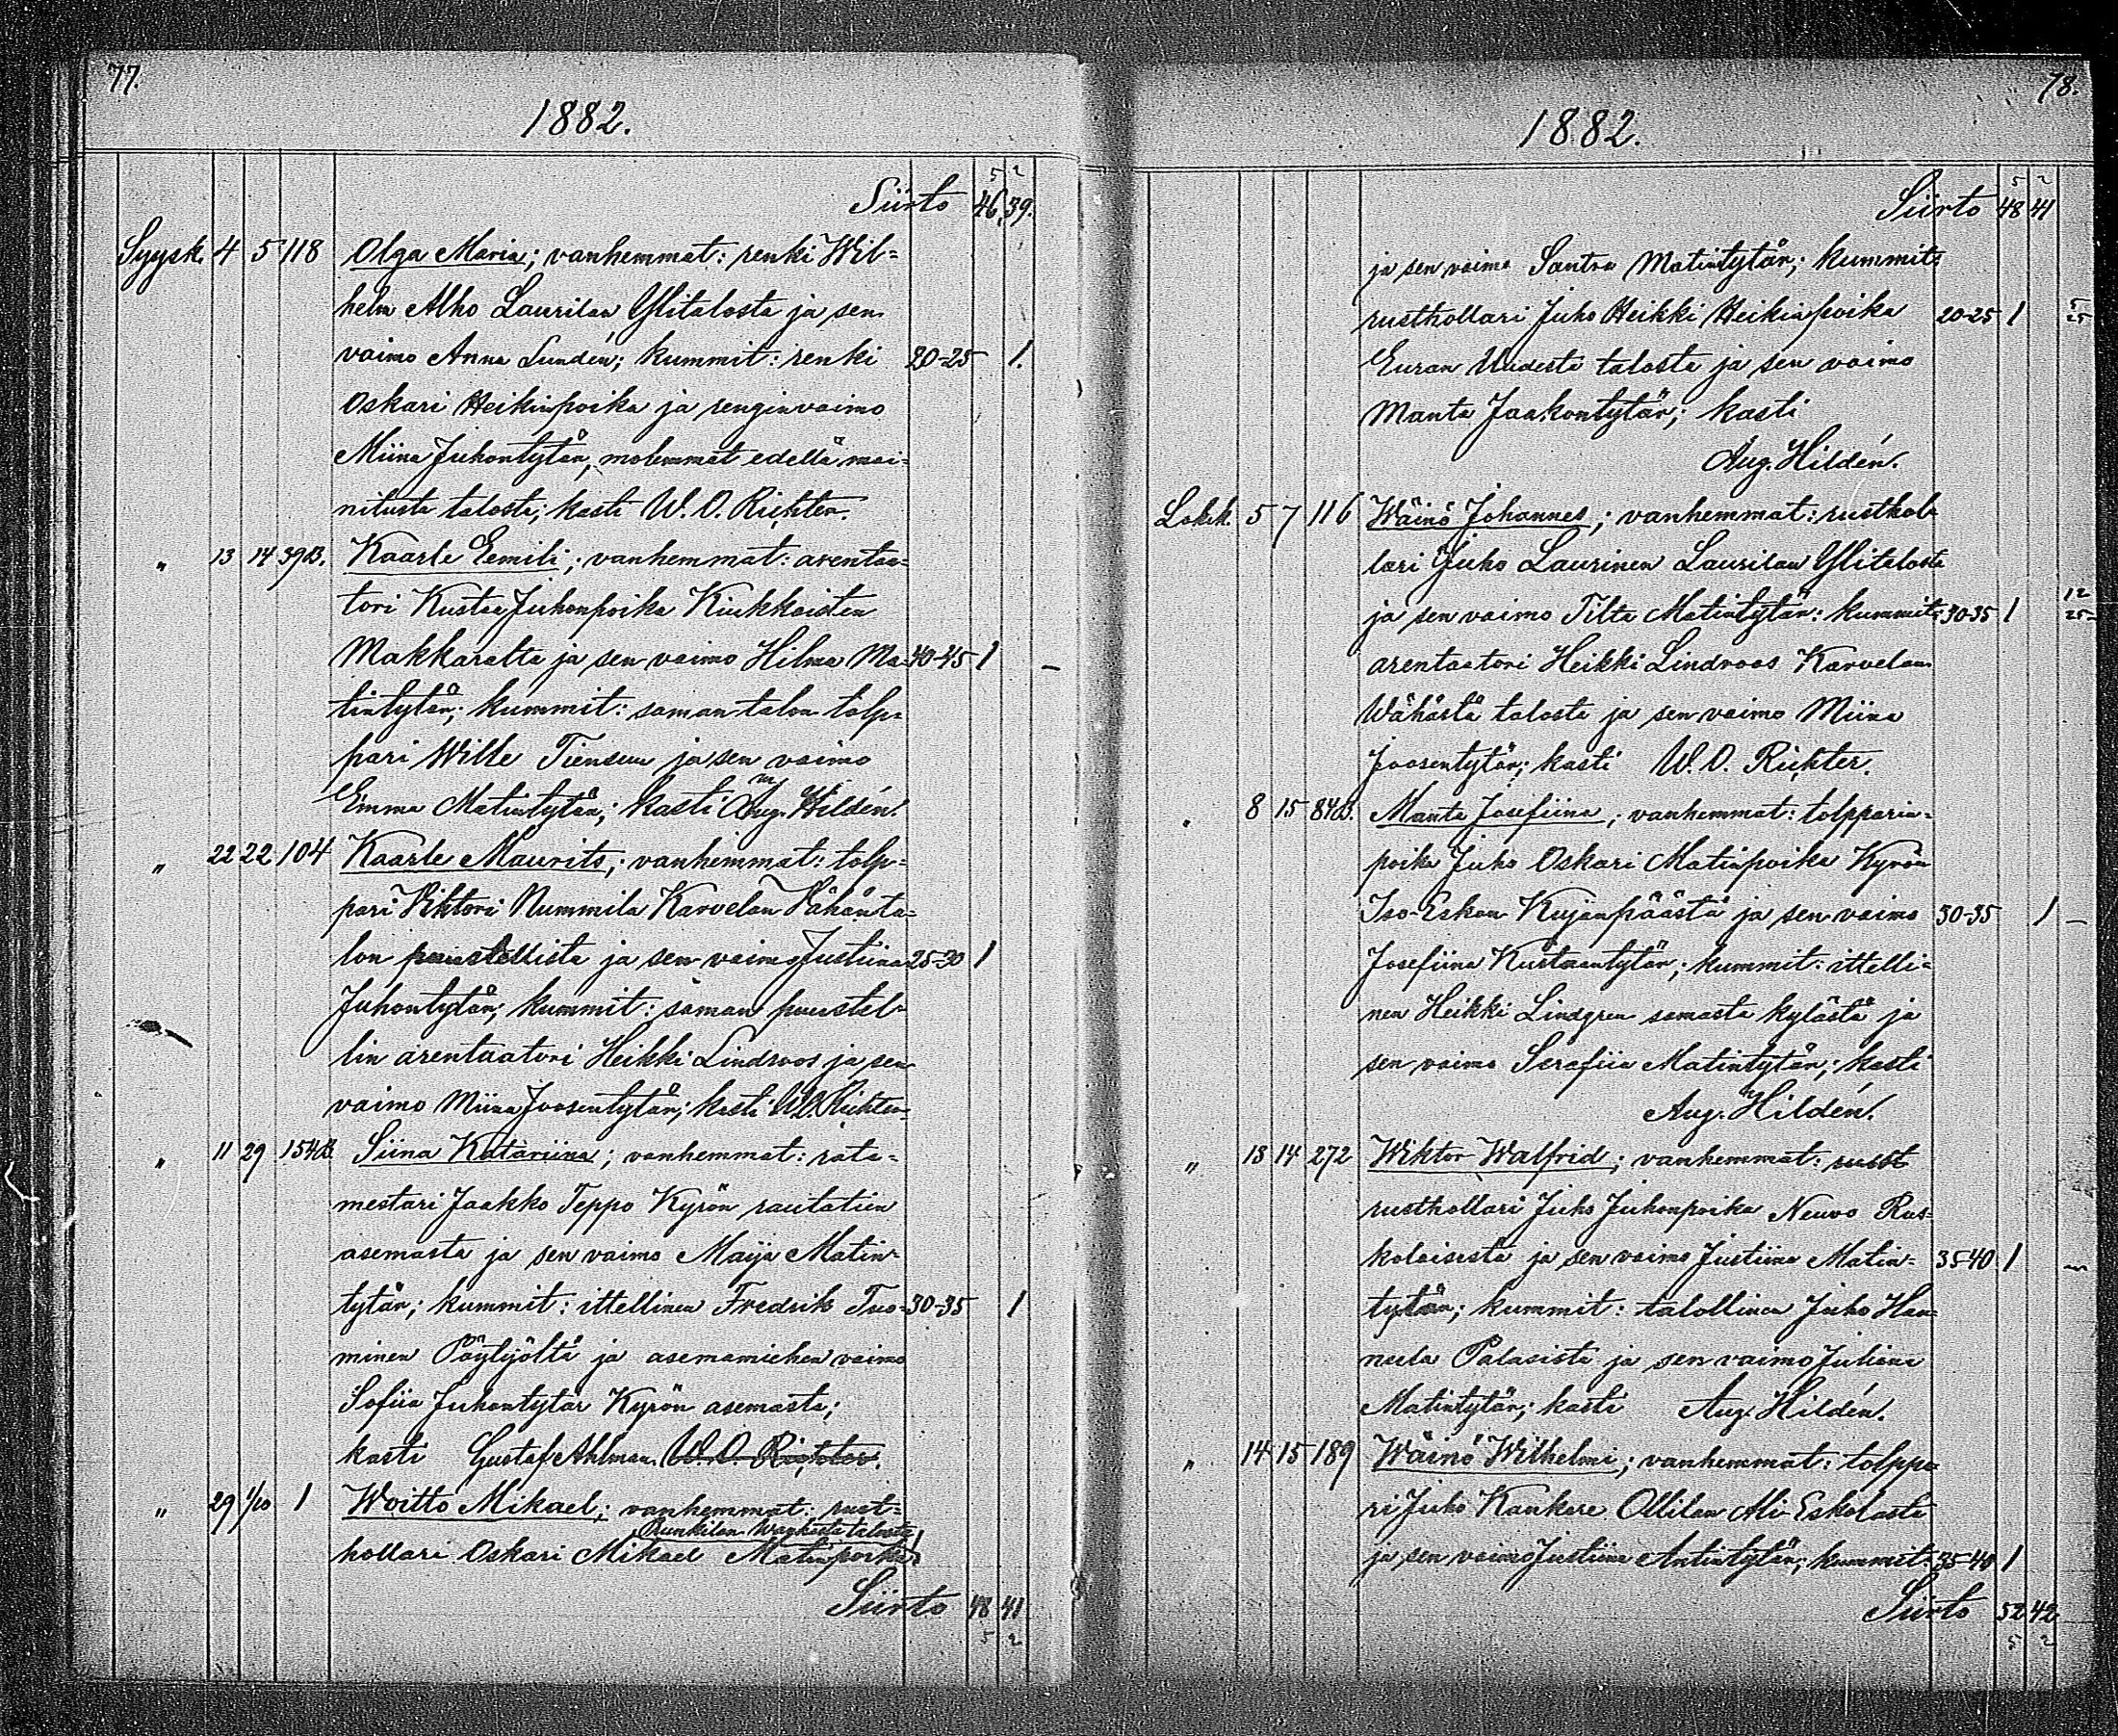 77.
1882.
5 2
Siirto 46, 39.
Syysk. 4 5 118 Olga Maria; vanhemmat: renki Wil=
helm Alho Laurilan Ylitalosta ja sen
vaimo Anna Lundén; kummit: renki 20-25 1.
Oskari Heikinpoika ja renginvaimo
Miina Juhontytär, molemmat edellä mai=
nitusta talosta; kasti W. O. Richter.
" 13 14 39B. Kaarle Eemili; vanhemmat: arentaa=
tori Kustaa Juhonpoika Kiukkaisten
Makkaralta ja sen vaimo Hilma Ma= 40-45 1 –
tintytär; kummit: saman talon tolp=
pari Wille Tiensuu ja sen vaimo
Emma Matintytär; kasti Aug. Hildén.
" 22 22 104 Kaarle Maurits; vanhemmat: tolp=
pari Viktori Nummila Karvelan Vähänta=
lon puustellista ja sen vaimo Justiina 25-30 1
Juhontytär; kummit: saman puustel=
lin arentaatori Heikki Lindroos ja sen
vaimo Miina Joosentytär; kasti W.O. Richter.
" 11 29 154B. Siina Katariina; vanhemmat: rata=
mestari Jaakko Teppo Kyrön rautatien
asemasta ja sen vaimo Maija Matin=
tytär; kummit: ittellinen Fredrik Tuo= 30-35 1
minen Pöytyöltä ja asemamiehen vaimo
Sofiia Juhontytär Kyrön asemasta;
kasti Gustaf Ahlman. W. O. Richter.
" 29 1/10 1 Woitto Mikael; vanhemmat: rust=
Wanhasta talosta
hollari Oskari Mikael Matinpoika
Siirto 48 41
5 2
78.
1882.
5 2
Siirto 48 41
ja sen vaimo Santra Matintytär; kummit:
rusthollari Juho Heikki Heikinpoika 20-25 1 5 25
Euran Uudesta talosta ja sen vaimo
Manta Jaakontytär; kasti
Aug. Hildén.
Lokak. 5 7 116 Wäinö Johannes; vanhemmat: rusthol=
lari Juho Laurinen Laurilan Ylitalosta
ja sen vaimo Tilta Matintytär: kummit: 30-35 1 12 25
arentaatori Heikki Lindroos Karvelan
Wähästä talosta ja sen vaimo Miina
Joosentytär; kasti W. O. Richter.
" 8 15 84B. Manta Josefiina; vanhemmat: tolpparin=
poika Juho Oskari Matinpoika Kyrön
Iso-Eskan Kujanpäästä ja sen vaimo 30-35 1 –
Josefiina Kustaantytär; kummit: ittelli=
nen Heikki Lindgren samasta kylästä ja
sen vaimo Serafiia Matintytär; kasti
Aug. Hildén.
" 13 14 272 Wiktor Walfrid; vanhemmat: rust
rusthollari Juho Juhonpoika Neuvo Rus=
kolaisista ja sen vaimo Justiina Matin= 35-40 1 –
tytär; kummit: talollinen Juho Han=
nula Palasista ja sen vaimo Juliana
Matintytär; kasti Aug. Hildén.
" 14 15 189 Wäinö Wilhelmi; vanhemmat: tolppa=
ri Juho Kankare Ollilan Ali-Eskolasta
ja sen vaimo Justiina Antintytär; kummit: 35-40 1
Siirto 52 42
5 2